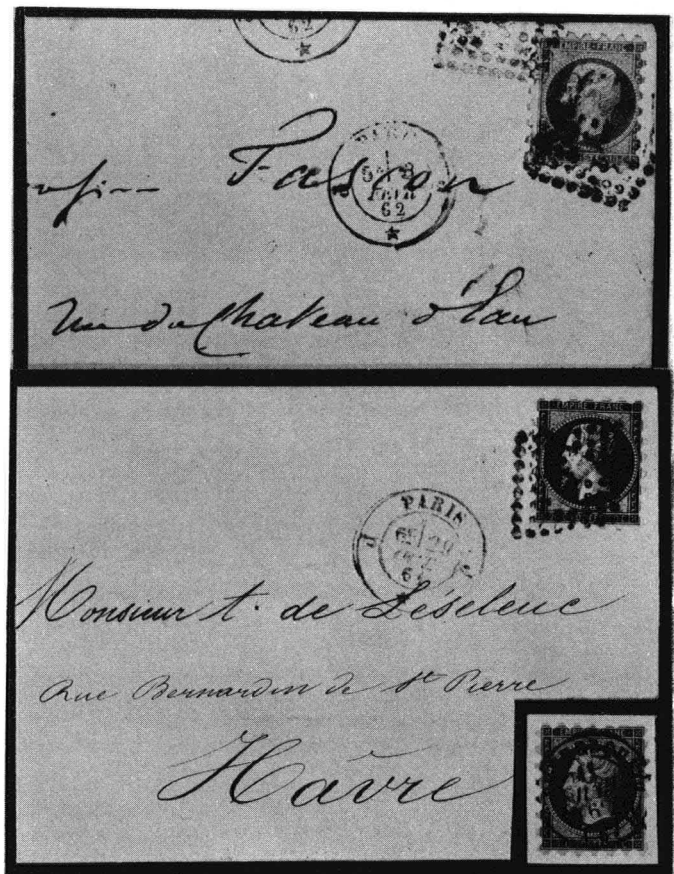 62
EMPIRE FRANC
PARIS
5E 3
FEVR
62
Pascon
rue du Chateau d'Eau
EMPIRE FRANC
PARIS
29
6
Monsieur t. de Léseleuc
Rue Bernardin de St Pierre
Havre